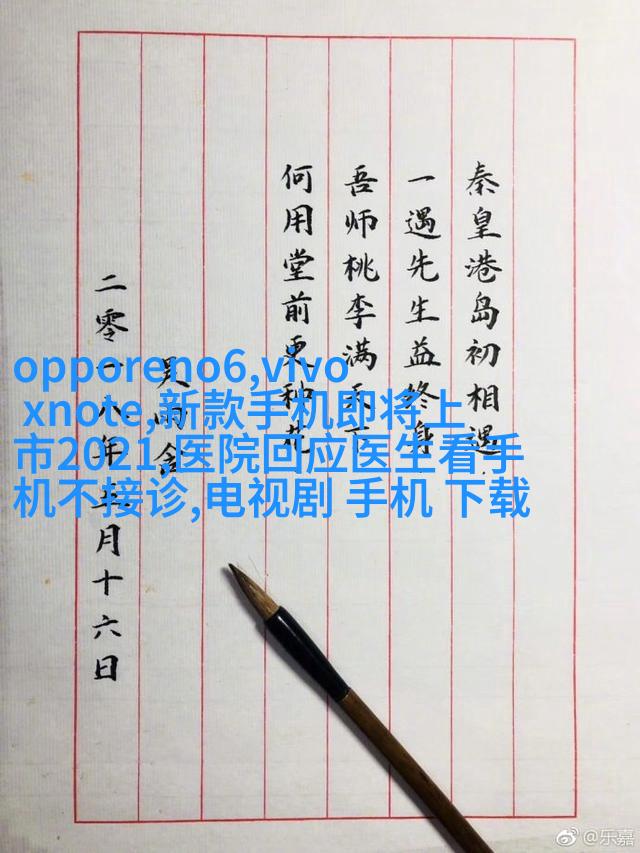 秦皇港岛初相遇
一遇先生益终身
吾师桃李满天下
何用堂前更种花
二零一八年五月十六日
opporeno6,vivo
xnote,新款手机即将上
市2021,医院回应医生看手
机不接诊,电视剧 手机 下载
@乐嘉